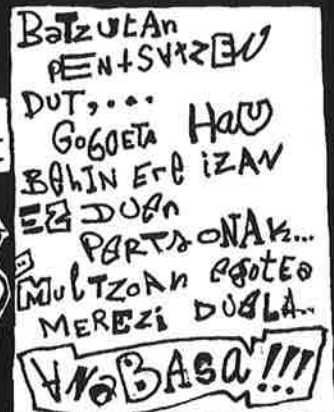 BaTzutAn
PENtSATZEN
DUT,...
GOGOETA HaU
BehIN Ere iZAN
EZ DUen
PERTSONAK...
MulTZOAN egoteA
MEREZi DUELA..
ANaBASA!!!